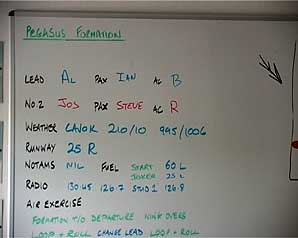 PEGASUS FORMATION
LEAD AL PAX IAN AC B
NO.2 JOS PAX STEVE AC R
WEATHER CAVOK 210/10 995/1006
RUNWAY 25 R
NOTAMS NIL FUEL START 60 L
JOKER 25 L
RADIO 130.45 126.7 STUD 1 126.8
AIR EXERCISE
FORMATION T/O DEPARTURE WING OVERS
LOOP + ROLL CHANGE LEAD LOOP + ROLL